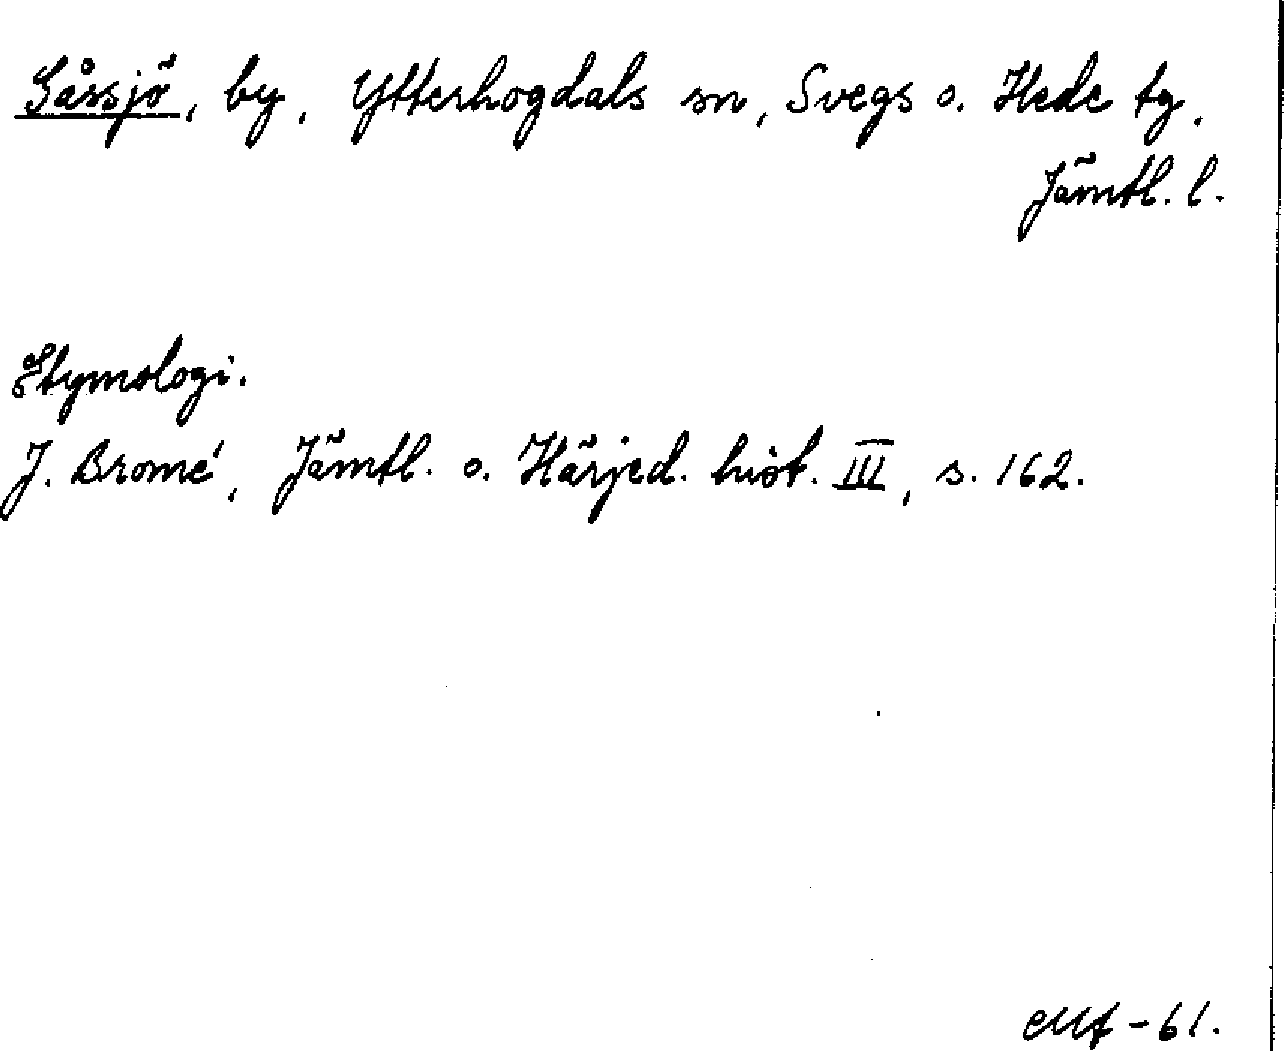 Gåssjö, by, Ytterhogdals sn, Svegs o. Hede tg.
Jämtl. l.
Etymologi.
J. Bromé, Jämtl. o. Härjed. hist. III, s. 162.
-61.